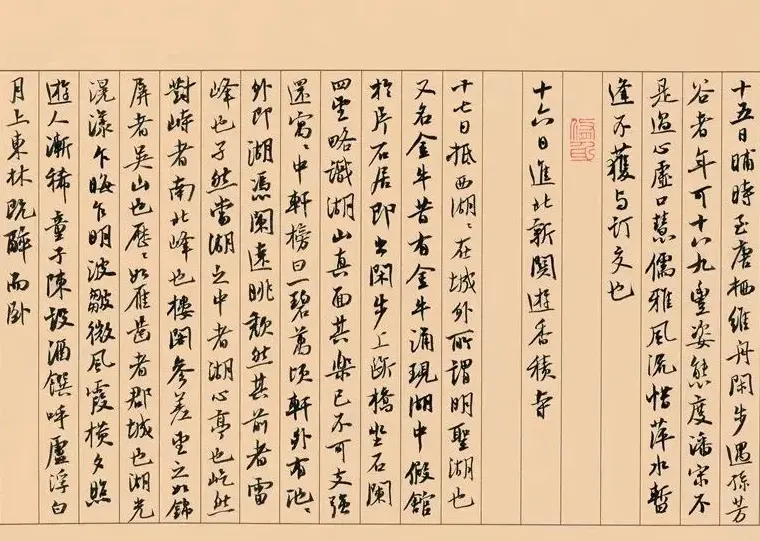 十五日晡時至唐栖維舟閑步遇孫芳
谷者年可十八九豐姿態度潘宋不
是過心虛口慧儒雅風流惜萍水暫
逢不獲与訂交也
十六日進北新関遊香積寺
十七日抵西湖〻在城外所謂明聖湖也
又名金牛昔有金牛涌現湖中假館
於片石居即出閑步上斷橋坐石闌
四望略識湖山真面其樂已不可支強
還寓〻中軒榜曰一碧萬頃軒外有池〻
外即湖憑闌遠眺頹然其前者雷
峰也孑然當湖之中者湖心亭也屹然
對峙者南北峰也樓閣參差望之如錦
屏者吳山也歷〻如雁齒者郡城也湖光
滉漾乍晦乍明波皺微風霞橫夕照
遊人漸稀童子陳設酒饌呼盧浮白
月上東林既醉而卧